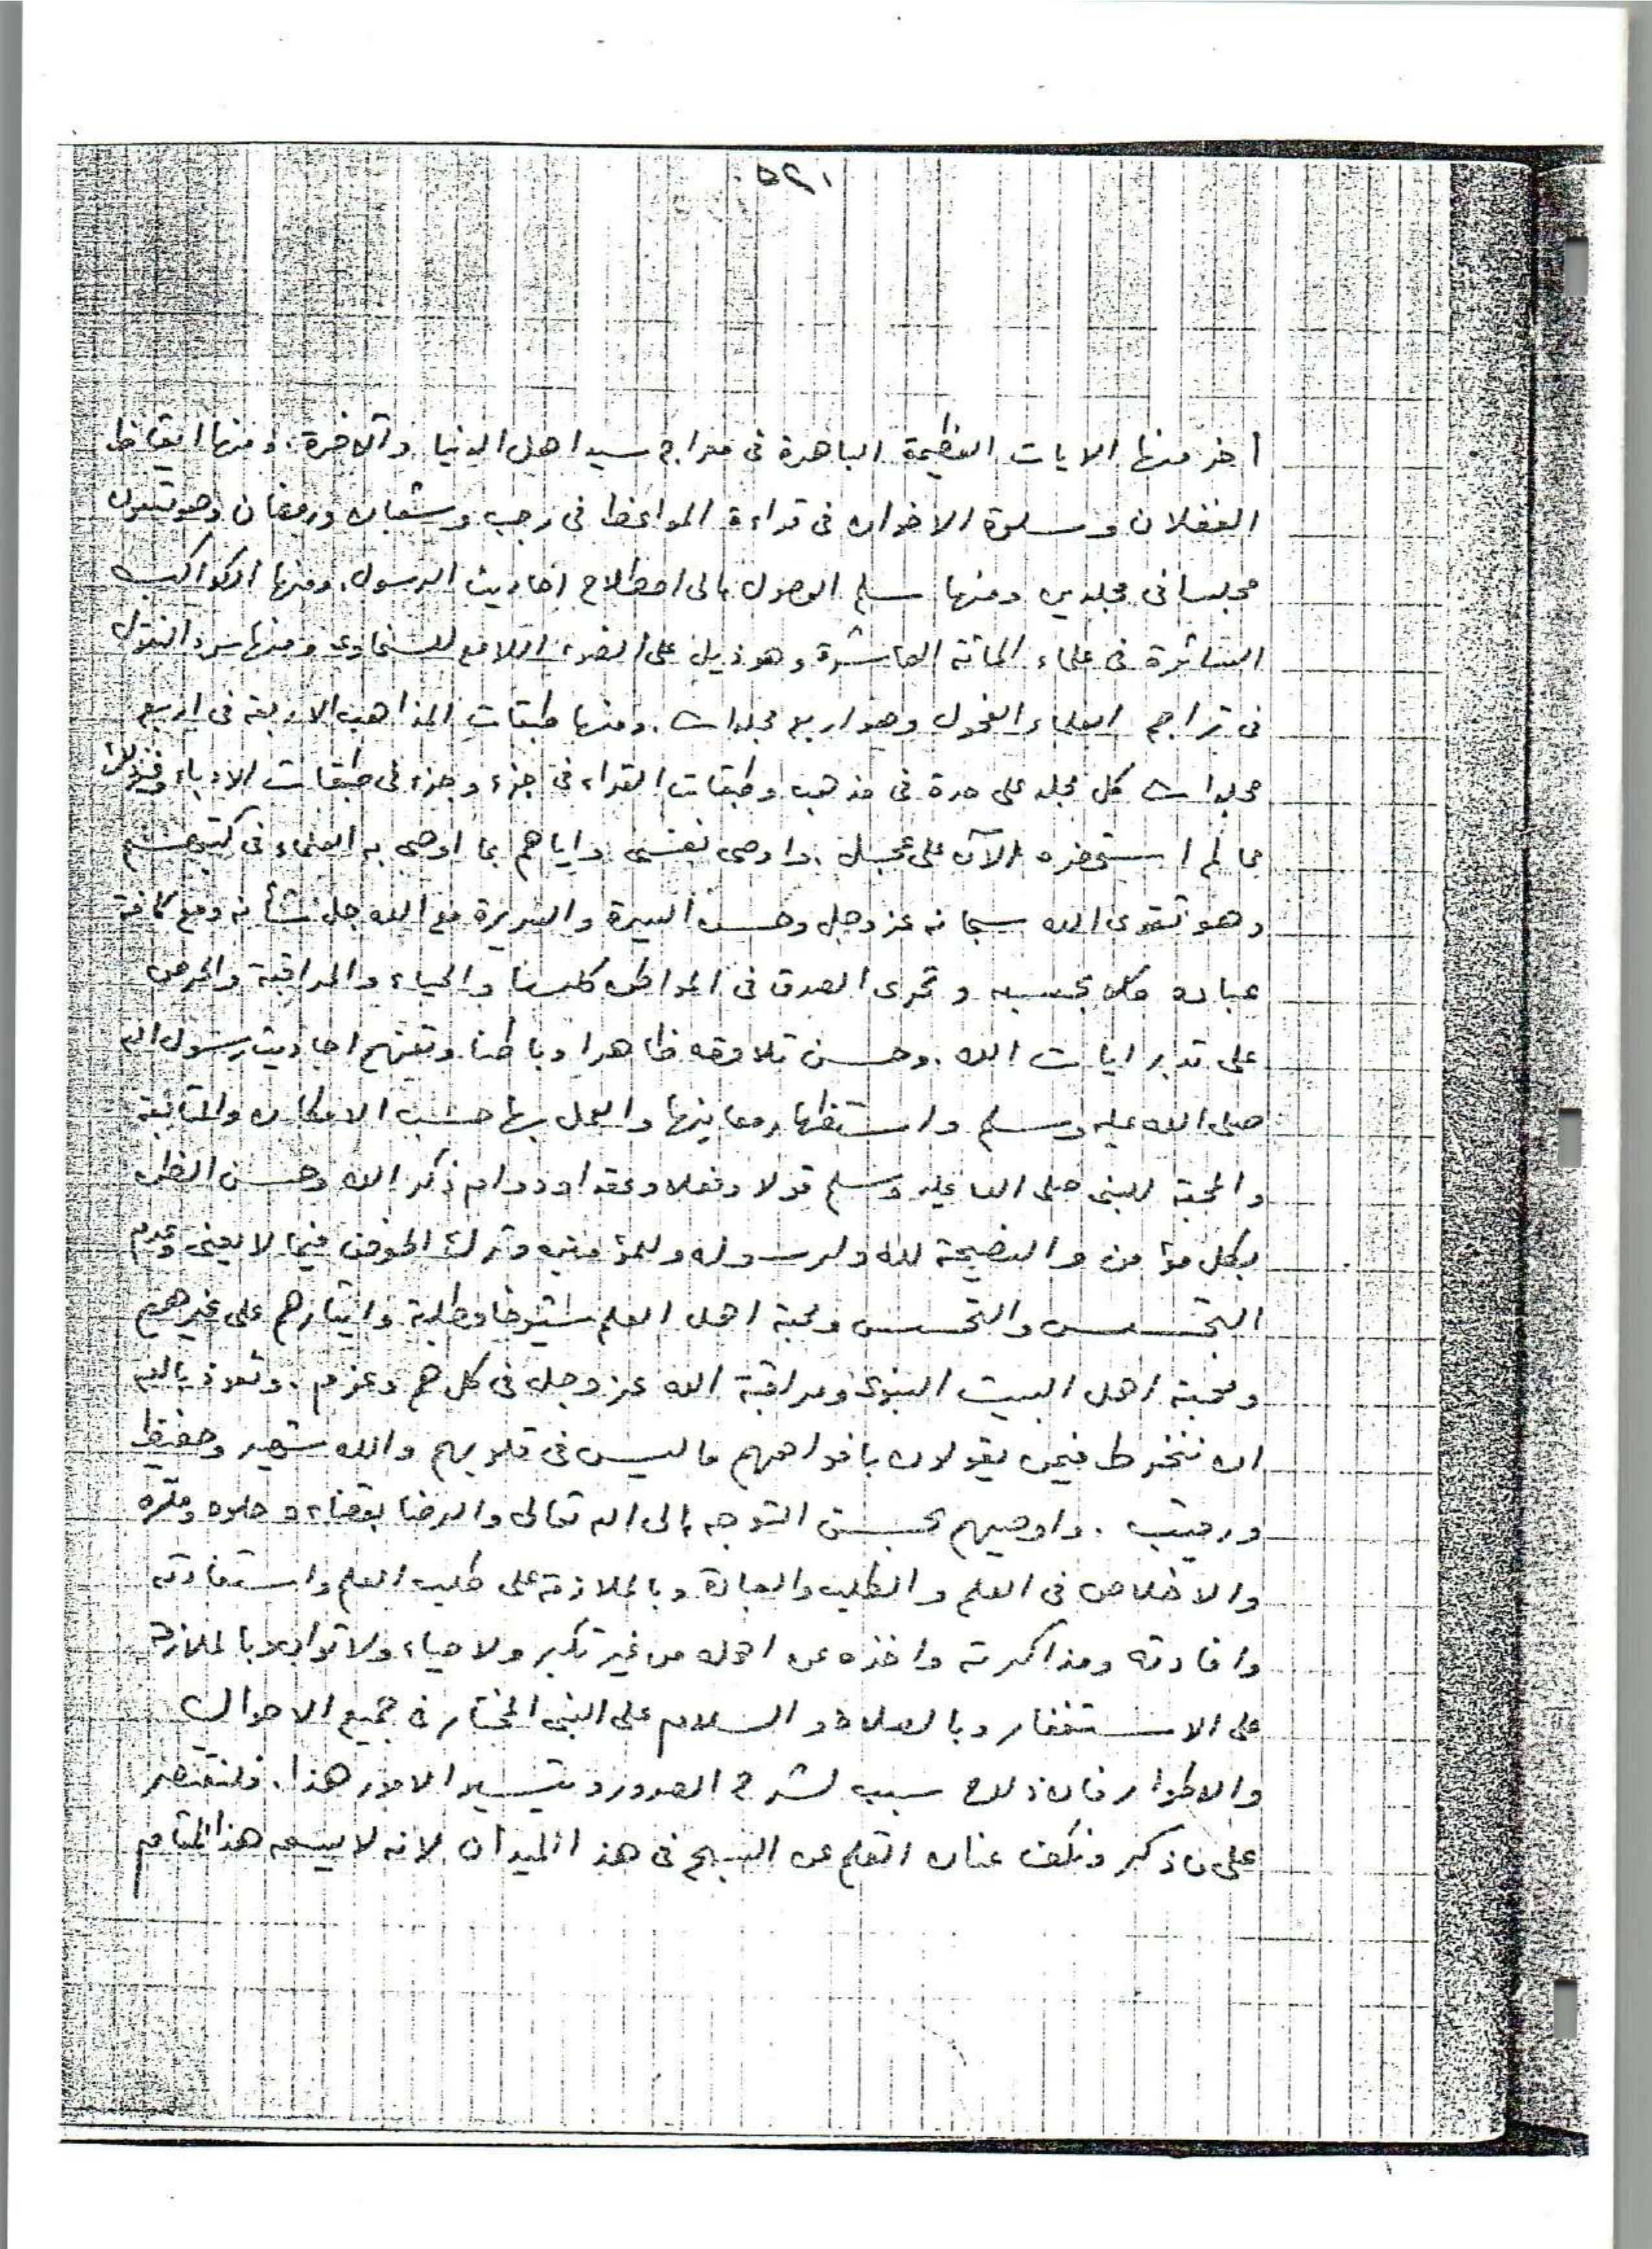 أخر منها الايات العظيمة الباهرة فى معراج سيد اهل الدنيا والآخرة، ومنها ايقاظ
الغفلان وسلوة الاخوان فى قراءة المواعظ فى رجب وشعبان ورمضان وهو تسعون
مجلسا فى مجلدين ومنها سلم الوصول إلى اصطلاح أحاديث الرسول. ومنها الكواكب
السائرة فى علماء المائة العاشرة وهو ذيل على الضوء اللامع للسخاوى ومنها سرد النقول
فى تراجم العلماء الفحول وهو اربع مجلدات. ومنها طبقات المذاهب الاربعة فى اربع
مجلدات كل مجلد على حدة فى مذهب وطبقات القراء فى جزء وجزء فى طبقات الادباء وغير ذلك
مما لم استحضره الآن على عجل. واوصى نفسى واياهم بما اوصى به العلماء فى كتبهم
وهو تقوى الله سبحانه عز وجل وحسن السيرة والسريرة مع الله جل شأنه ومع كافة
عباده كل بحسبه وتحرى الصدق فى المواطن كلها والحياء والمراقبة والحرص
على تدبر ايات الله. وحسن تلاوته ظاهرا وباطنا وتفهم احاديث رسول الله
صلى الله عليه وسلم واستظهار معاينها والعمل بها حسب الامكان والمتابعة
والمحبة للنبى صلى الله عليه وسلم قولا وفعلا وعقدا ودوام ذكر الله وحسن الظن
بكل مؤمن والنصيحة لله ولرسوله وللمؤمنين وترك الخوض فيما لا يعنى وعدم
التجسس والتحسس ومحبة اهل العلم شيوخا وطلبة وايثارهم على غيرهم
ومحبة اهل البيت النبوى ومراقبة الله عز وجل فى كل هم وعزم. ونعوذ بالله
ان ننخرط فيمن يقولون بافواههم ما ليس فى قلوبهم والله شهيد وحفيظ
ورقيب. واوصيهم بحسن التوجه إلى الله تعالى والرضا بقضاءه حلوه ومره
والاخلاص فى العلم والطلب والعبادة وبالملازمة على طلب العلم واستفادته
وافادته ومذاكرته واخذه عن اهله من غير تكبر ولا حياء ولا توان وبالملازمة
على الاستغفار وبالصلاة والسلام على النبى المختار فى جميع الاحوال
والاطوار فان ذلك سبب لشرح الصدور وتيسير الامور هذا. ولنقتصر
على ما ذكر ونكف عنان القلم عن السبح فى هذا الميدان لانه لا يسعه هذا المقام